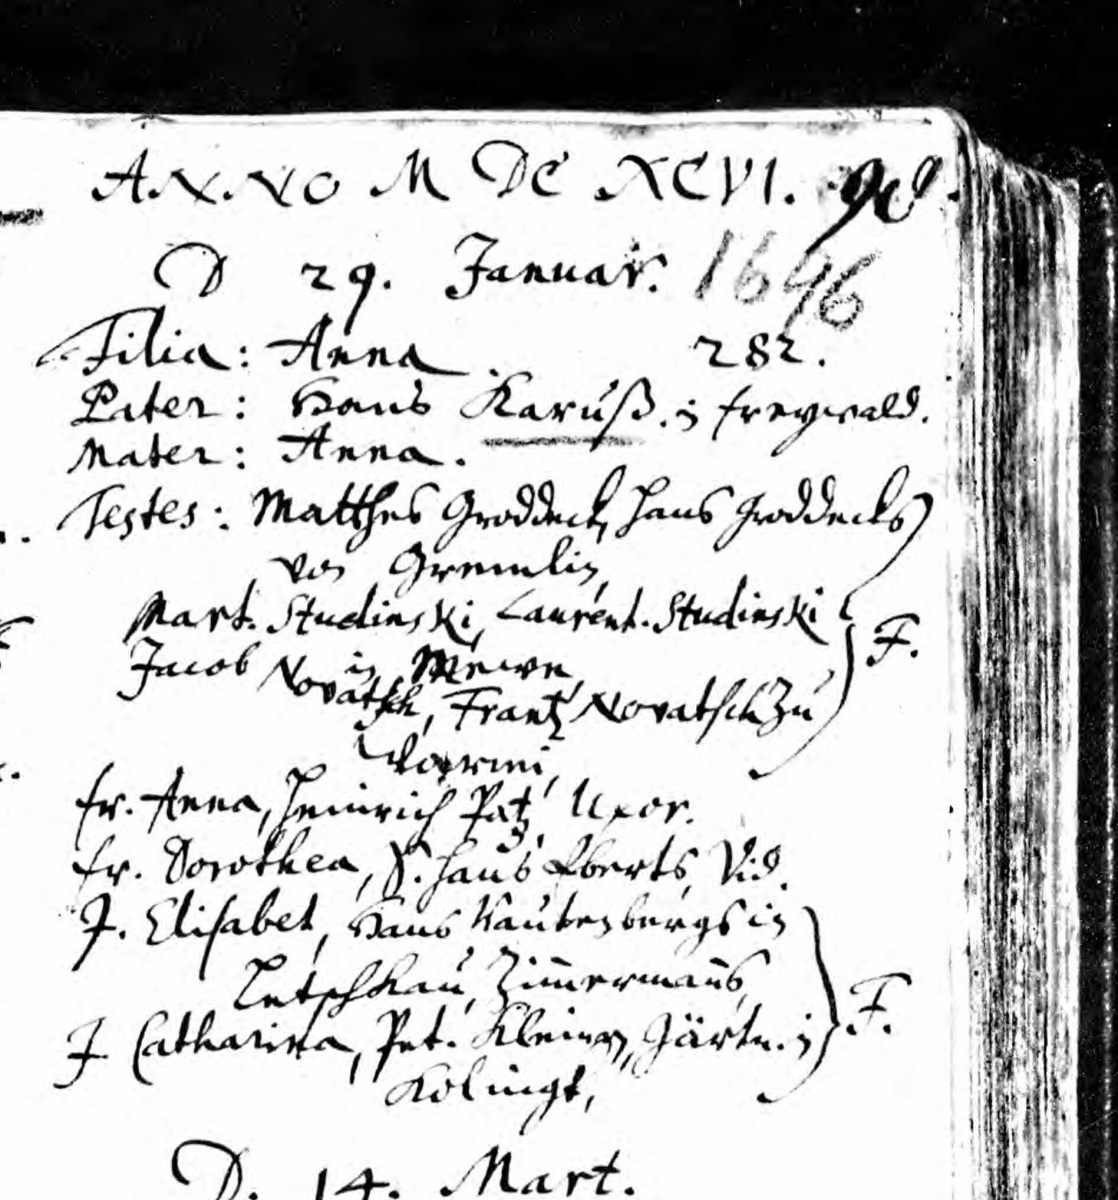 ANNO M DC XCVI. 90.
D 29. Januar. 1696
Filia: Anna. 282.
Pater: Hans Karuß. in freywald.
Mater: Anna.
Testes: Matthes Groddeck, Hans Groddecks
von Gremlin,
Mart. Studinski, Laurent. Studinski
in Mewe,
Jacob Novatsch, Frantz Novatsch zu
F.
fr. Anna, Heinrich Patz, Uxor.
fr. Dorothea, S. Hans Eberts, Vid.
J. Elisabet, Hans Rautenbergs in
Letschkau, Zimermans,
F.
J. Catharina, Pet. Kleinen, Gärtn. in
Kolingk,
D. 14. Mart.